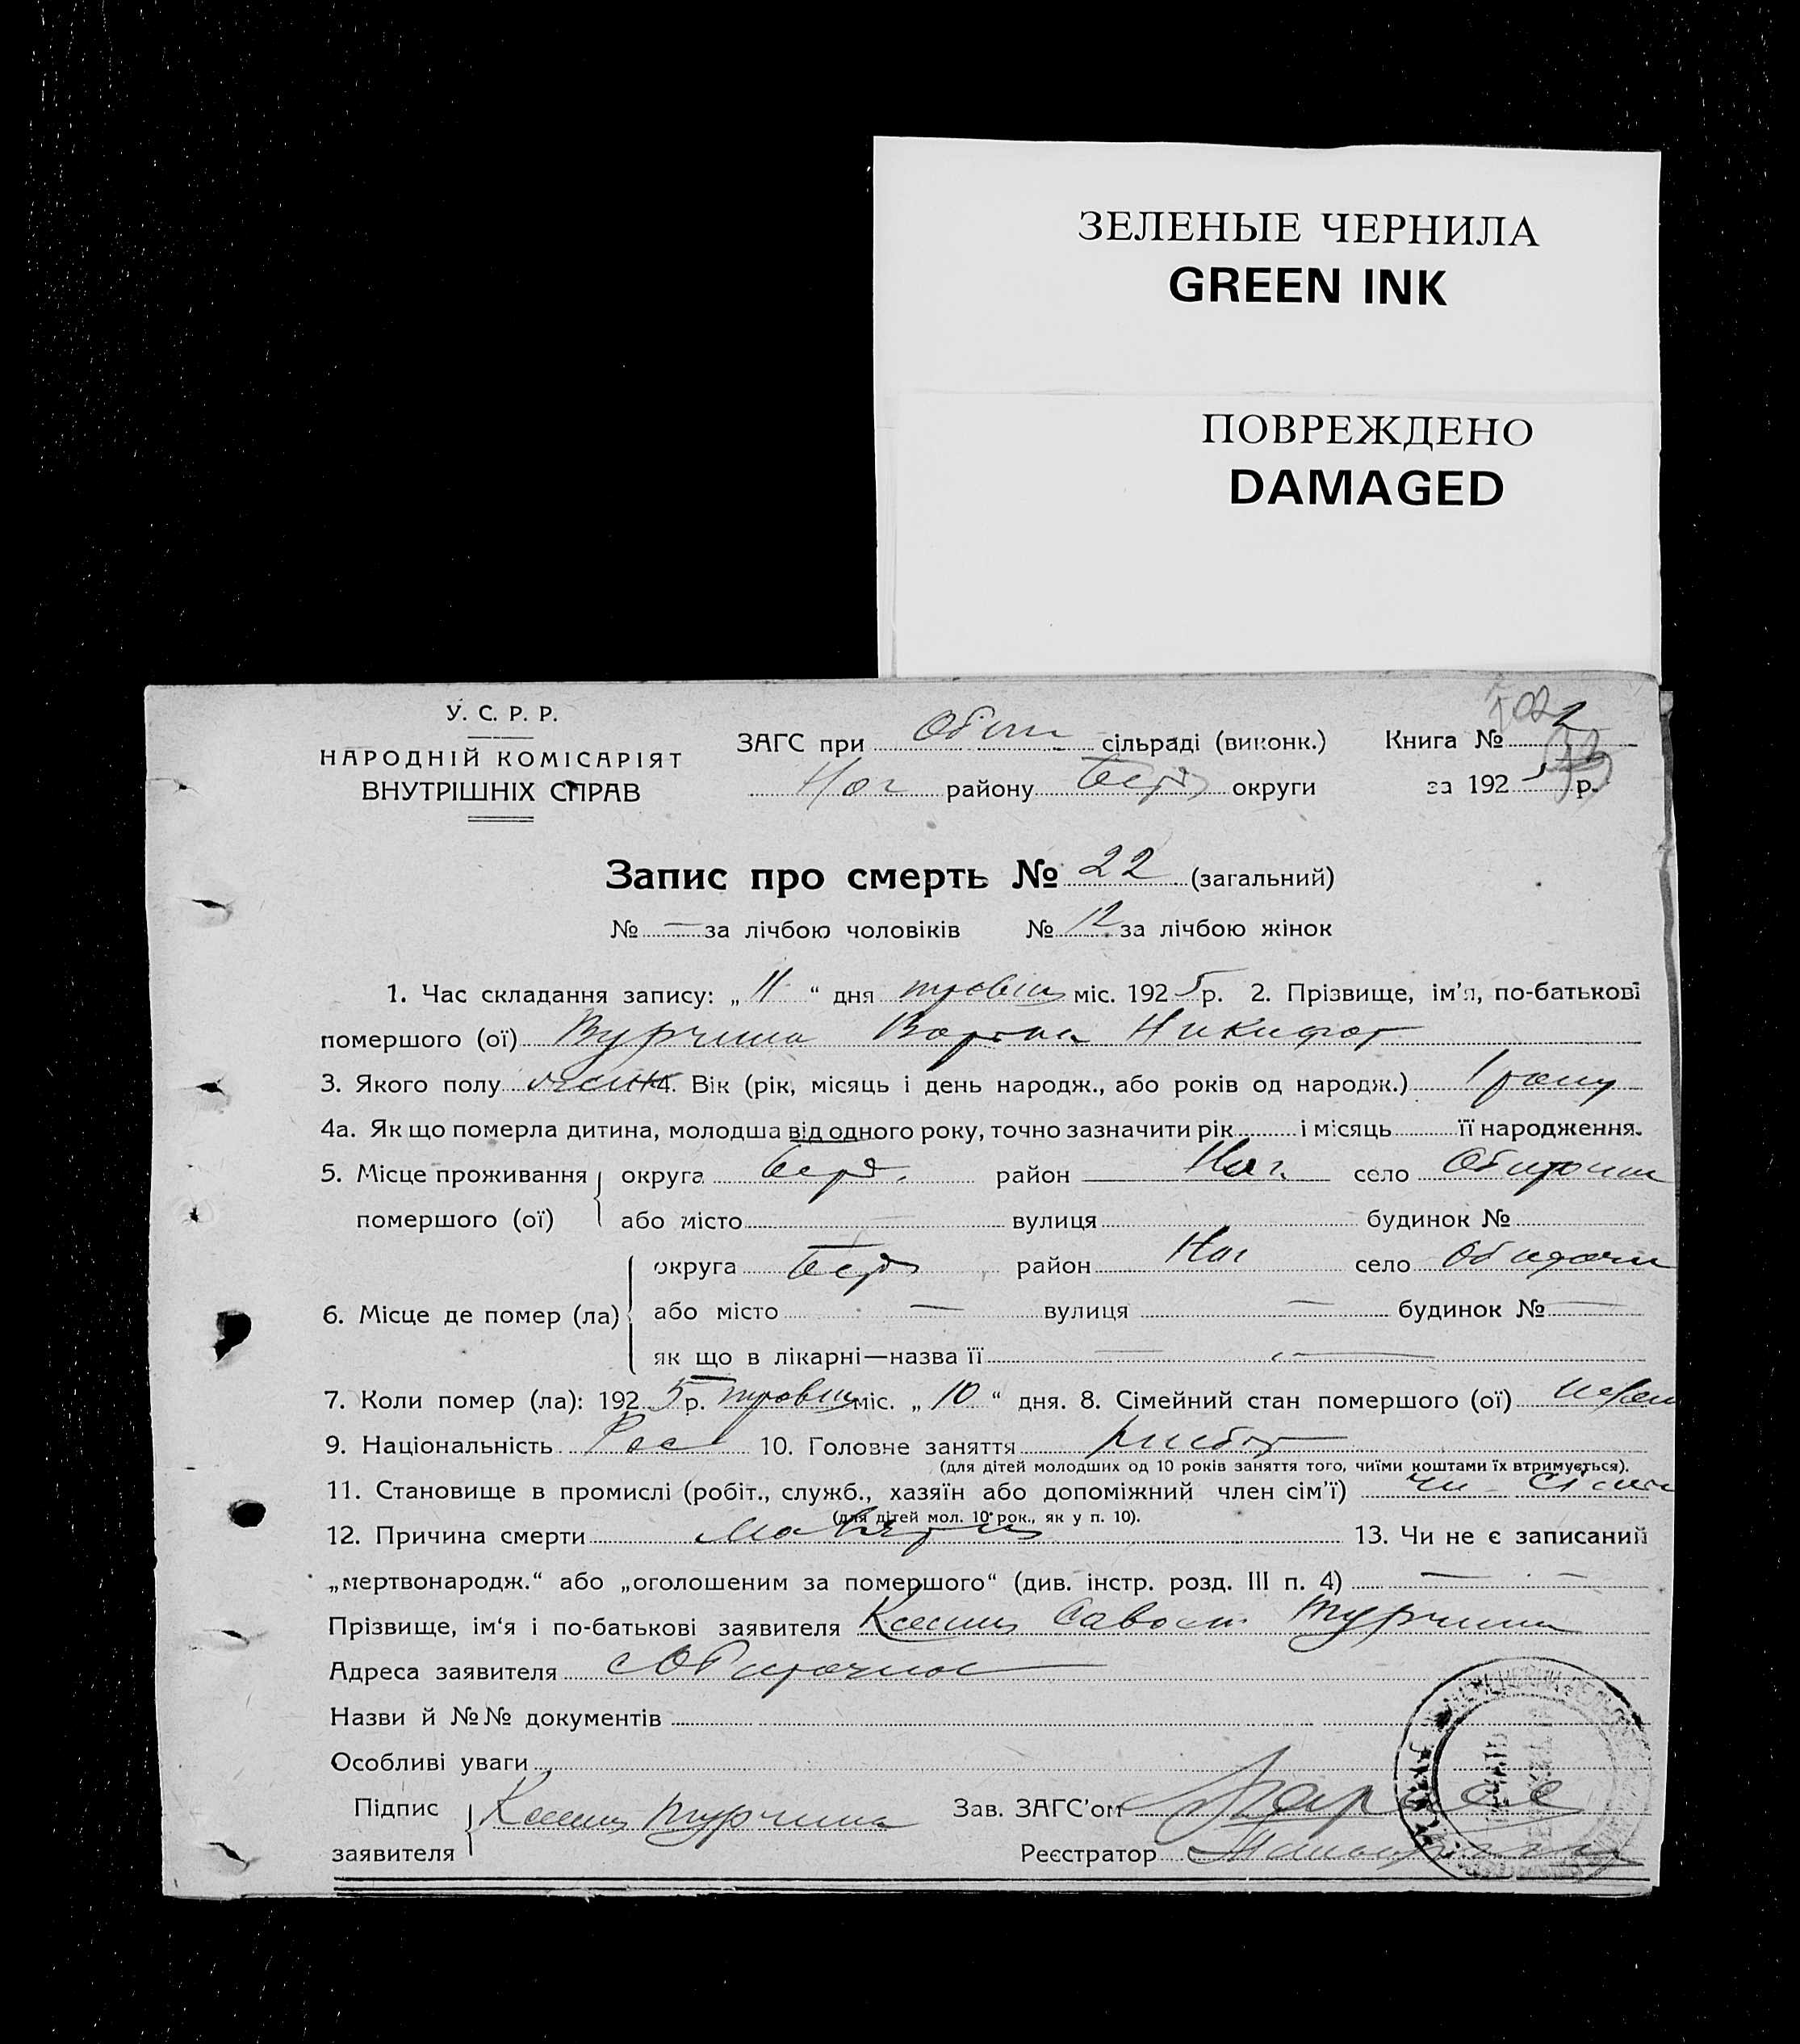 ЗЕЛЕНЫЕ ЧЕРНИЛА
GREEN INK
ПОВРЕЖДЕНО
DAMAGED
У. С. Р. Р.
НАРОДНІЙ КОМІСАРІЯТ
ВНУТРІШНІХ СПРАВ
ЗАГС при Обит сільраді (виконк.) Книга № 2
Ног району Берд округи за 1925 р.
Запис про смерть № 22 (загальний)
№ — за лічбою чоловіків № 12 за лічбою жінок
1. Час складання запису: „11“ дня травня міс. 1925 р. 2. Прізвище, ім'я, по-батькові
помершого (ої) Турчина Никифор
3. Якого полу жін 4. Вік (рік, місяць і день народж., або років од народж.) 1 року
4а. Як що померла дитина, молодша від одного року, точно зазначити рік і місяць її народження.
5. Місце проживання округа Берд. район Ног. село
помершого (ої) або місто — вулиця будинок №
округа Берд район Ног село
6. Місце де помер (ла) або місто — вулиця — будинок № —
як що в лікарні—назва її — —
7. Коли помер (ла): 1925 р. травня міс. „10“ дня. 8. Сімейний стан помершого (ої)
9. Національність Рос 10. Головне заняття
(для дітей молодших од 10 років заняття того, чиїми коштами їх втримується).
11. Становище в промислі (робіт., служб., хазяїн або допоміжний член сім'ї) чл
(для дітей мол. 10 рок., як у п. 10).
12. Причина смерти 13. Чи не є записаний
„мертвонародж.“ або „оголошеним за помершого“ (див. інстр. розд. III п. 4) — —
Прізвище, ім'я і по-батькові заявителя Ксения Савост Турчина
Адреса заявителя с Обиточное
Назви й №№ документів
Особливі уваги
Підпис заявителя Ксения Турчина Зав. ЗАГС'ом
Реєстратор